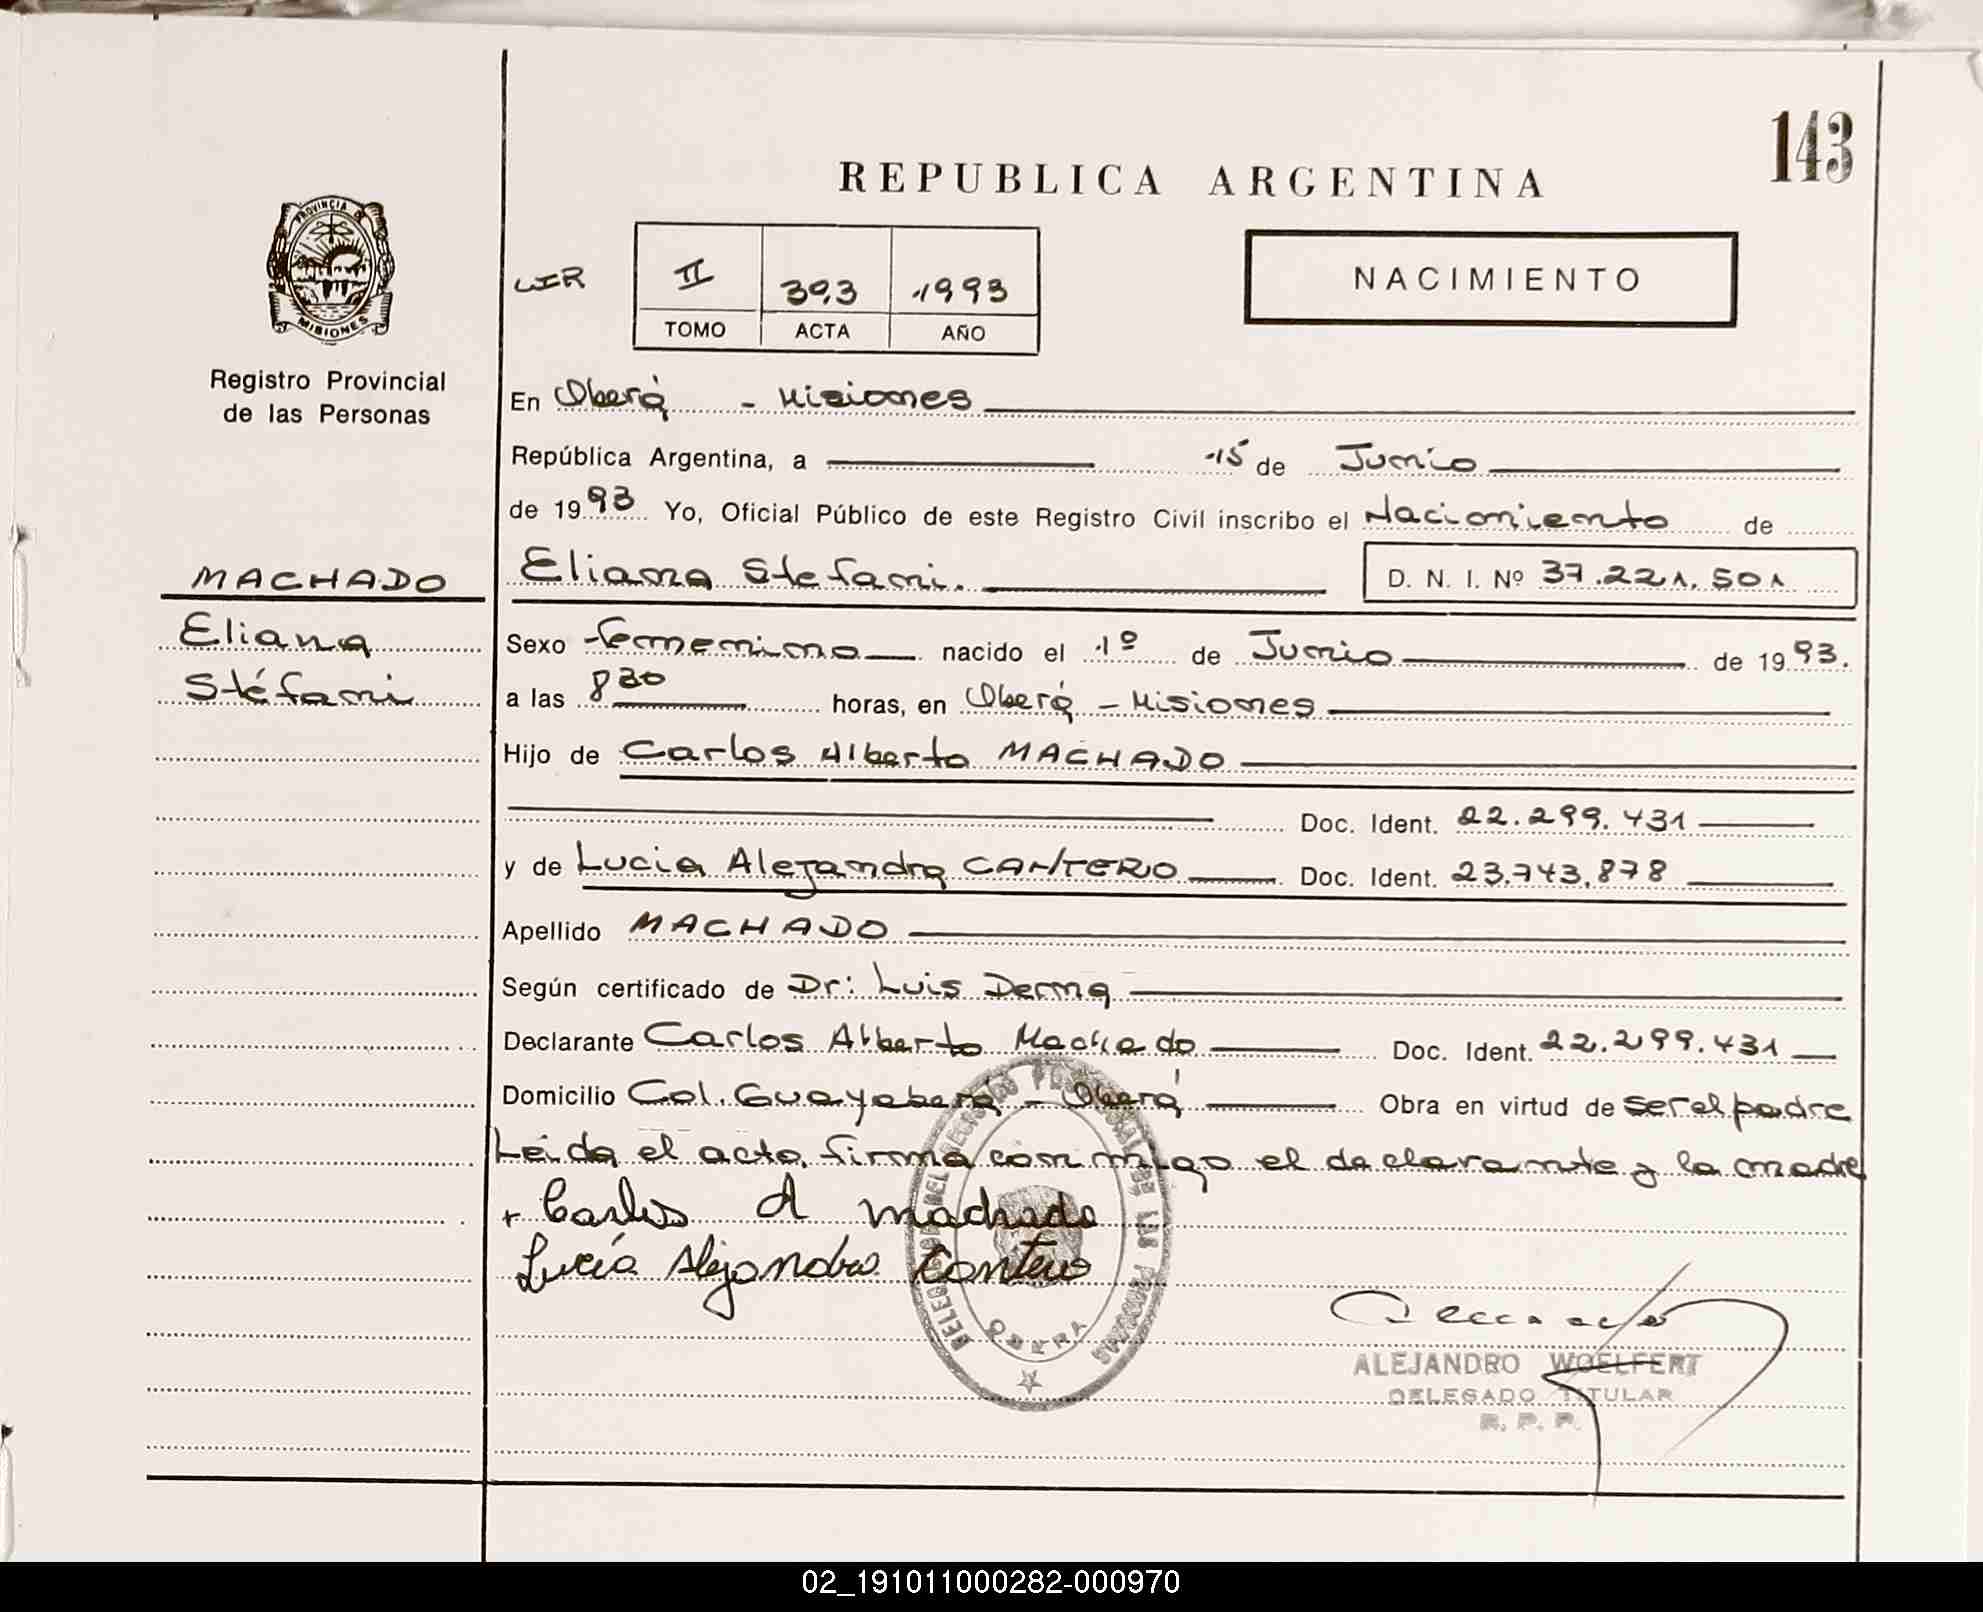 143
REPUBLICA ARGENTINA
PROVINCIA DE
MISIONES
Registro Provincial
de las Personas
II 393 1993
TOMO ACTA AÑO
NACIMIENTO
En Oberá - Misiones
República Argentina, a 15 de Junio
de 1993 Yo, Oficial Público de este Registro Civil inscribo el Nacimiento de
MACHADO
Eliana
Stéfani
Eliana Stefani. D. N. I. Nº 37.221.501
Sexo femenino nacido el 1º de Junio de 1993.
a las 8 30 horas, en Oberá - Misiones
Hijo de Carlos Alberto MACHADO
Doc. Ident. 22.299.431
y de Lucia Alejandra CANTERO Doc. Ident. 23.743.878
Apellido MACHADO
Según certificado de Dr: Luis Derna
Declarante Carlos Alberto Machado Doc. Ident. 22.299.431
Domicilio Col. Guayabera - Oberá Obra en virtud de ser el padre
Leida el acta, firma conmigo el declarante y la madre
+ Carlos A machado
Lucía Alejandra Cantero
OBERA
ALEJANDRO WOELFERT
DELEGADO TITULAR
R. P. P.
02_191011000282-000970